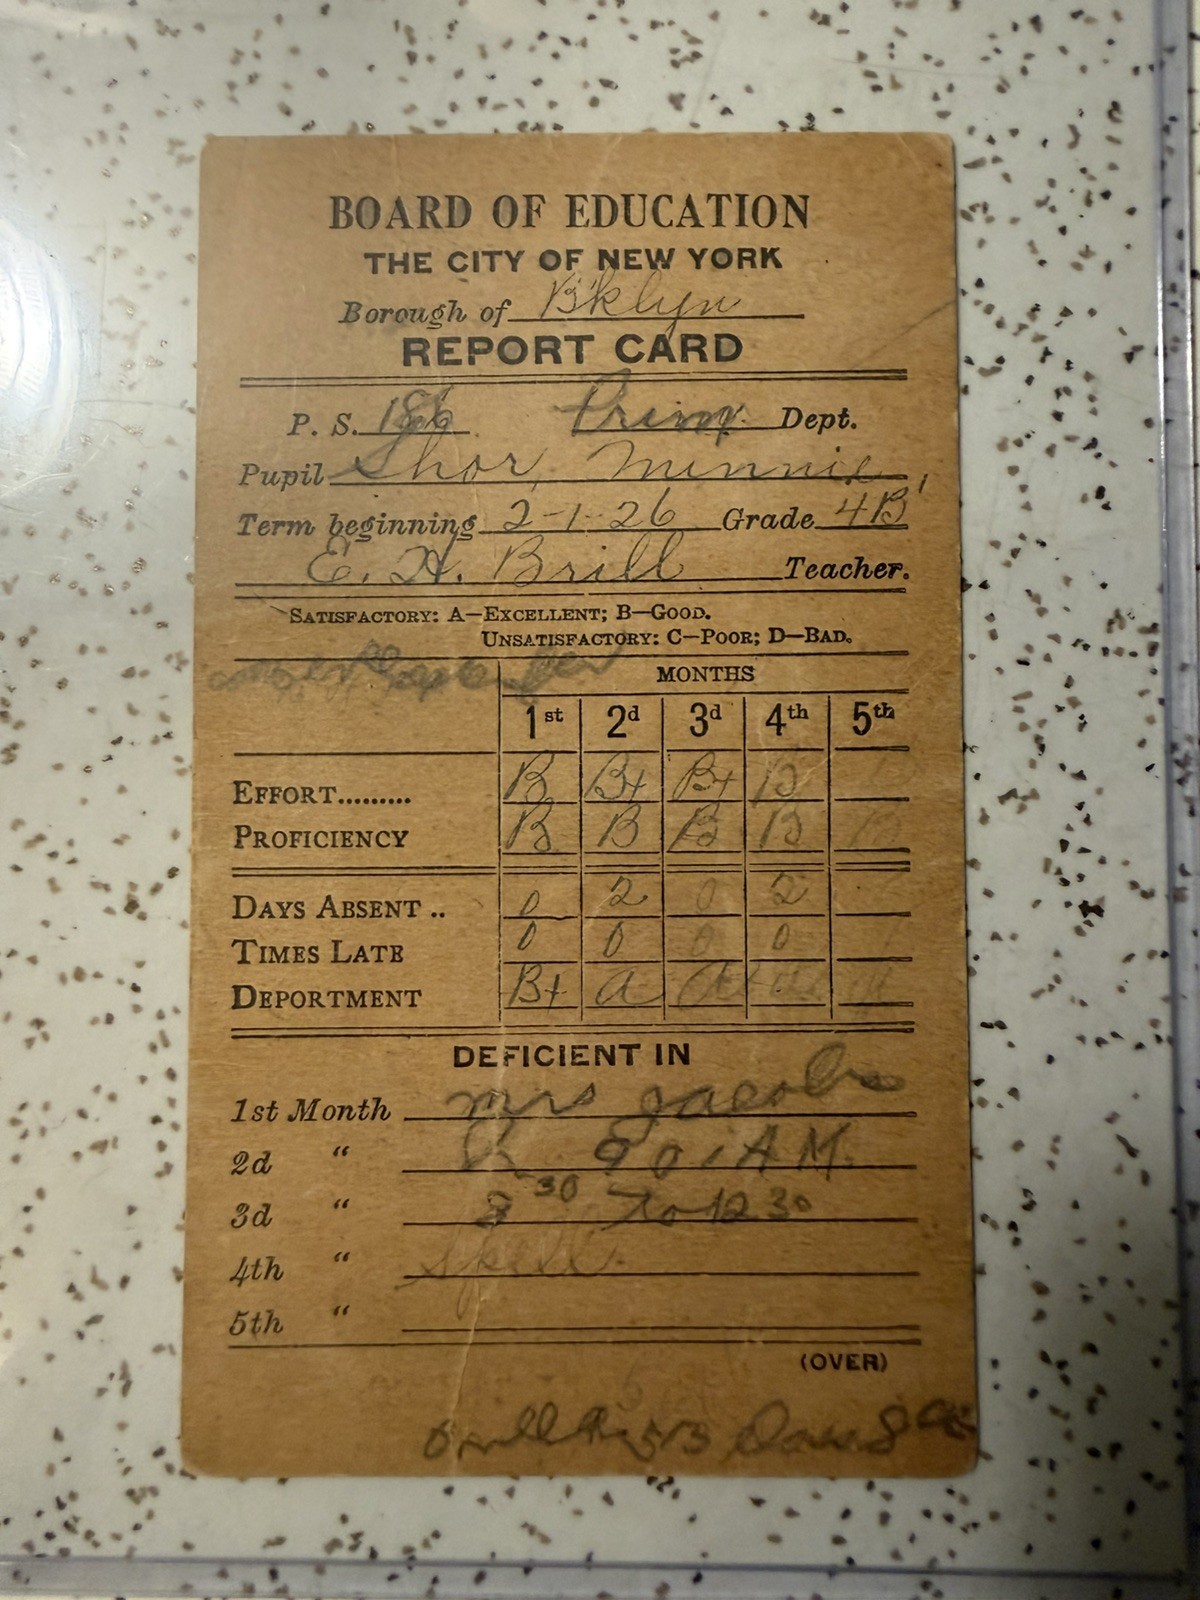 BOARD OF EDUCATION
THE CITY OF NEW YORK
Borough of B'klyn
REPORT CARD
P. S. 186 Prim. Dept.
Pupil Shor, Minnie
Term beginning 2-1-26 Grade 4B'
E. H. Brill Teacher.
SATISFACTORY: A—EXCELLENT; B—GOOD.
UNSATISFACTORY: C—POOR; D—BAD.
MONTHS
1st 2d 3d 4th 5th
EFFORT......... B B+ B+ B
PROFICIENCY B B B B B
DAYS ABSENT .. 0 2 0 2
TIMES LATE 0 0 0 0
DEPORTMENT B+ A A
DEFICIENT IN
1st Month Mrs Jacobs
2d " AM
3d " 8 30 To 12 30
4th " Spell.
5th "
(OVER)
513